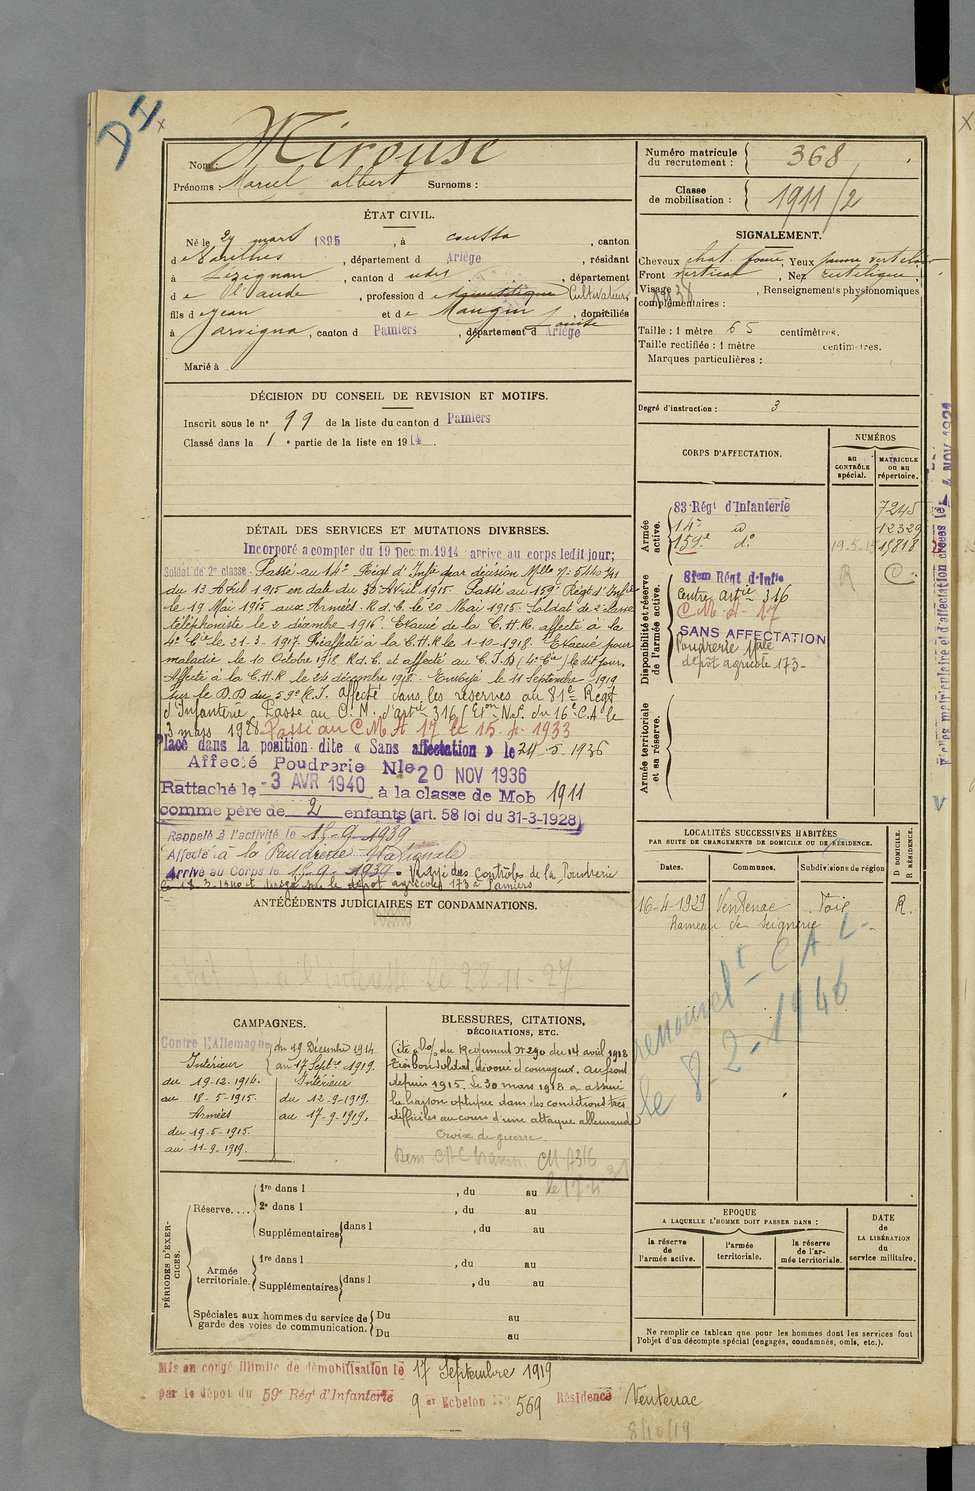 DI
Nom : Mirouse
Prénoms : Marcel Albert Surnoms :
Numéro matricule du recrutement : 368
Classe de mobilisation : 1911/2
ÉTAT CIVIL.
Né le 27 mars 1895, à Coussa, canton
de Varilhes, département d Ariège, résidant
à Lézignan, canton d udit, département
de l'Aude, profession de Cultivateur
fils de Jean et de Maugin, domiciliés
à Jarrigna, canton d Pamiers, département d Ariège
Marié à
SIGNALEMENT.
Cheveux chat. foncé, Yeux
Front vertical, Nez rectiligne,
Visage, Renseignements physionomiques
complémentaires :
Taille : 1 mètre 65 centimètres.
Taille rectifiée : 1 mètre centimètres.
Marques particulières :
Degré d'instruction : 3
DÉCISION DU CONSEIL DE REVISION ET MOTIFS.
Inscrit sous le n° 99 de la liste du canton d Pamiers
Classé dans la 1e partie de la liste en 1914.
DÉTAIL DES SERVICES ET MUTATIONS DIVERSES.
Incorporé a compter du 19 Décem. 1914 arrivé au corps ledit jour;
Soldat de 2e classe. Passé au 14e Régt d'Infie par décision Mlle n° 5440 741
du 13 Avril 1915 en date du 30 Avril 1915. Passé au 159e Régt d'Infie
le 19 Mai 1915 aux Armées. R.d.C. le 20 Mai 1915. Soldat de 2e classe
téléphoniste le 2 décembre 1916. Evacué de la C.H.R. affecté à la
4e Cie le 21-3-1917. Réaffecté à la C.H.R le 1-10-1918. Evacué pour
maladie le 10 Octobre 1918. R.d.C. et affecté au C.I.D (4e Cie) le dit jour.
Affecté à la C.H.R le 24 décembre 1918. Envoyé le 11 Septembre 1919
sur le D.D du 59e R.I. affecté dans les réserves au 81e Régt
d'Infanterie. Passé au C.M. d'artie 316 (Eton N.S. du 16e C.A) le
3 mars 1928. Passé au CM A 17 le 15-4-1933
Placé dans la position dite « Sans affectation » le 24-5-1936
Affecté Poudrerie Nle 20 NOV 1936
Rattaché le 3 AVR 1940 à la classe de Mob 1911
comme père de 2 enfants (art. 58 loi du 31-3-1928)
Rappelé à l'activité le 15-9-1939
Affecté à la Poudrerie Nationale
Arrivé au Corps le 15-9-1939. Rayé des contrôles de la Poudrerie
le 18-3-1940 et dirigé sur le dépôt agricole 173 à Pamiers
CORPS D'AFFECTATION.
NUMÉROS
au CONTRÔLE spécial.
MATRICULE ou au répertoire.
Armée active.
83e Régt d'Infanterie 7245
14e d° 12329
159e d° 19.5.15 15818
Disponibilité et réserve de l'armée active.
81em Régt d'Infie
Centre Artie 316
C.M. A. 17
SANS AFFECTATION
Poudrerie Nale
dépôt agricole 173
Armée territoriale et sa réserve.
LOCALITÉS SUCCESSIVES HABITÉES
PAR SUITE DE CHANGEMENTS DE DOMICILE OU DE RÉSIDENCE.
Dates. Communes. Subdivisions de région D DOMICILE. R RÉSIDENCE.
16-4-1929 Ventenac Foix R.
Hameau de Seignerie
renouvelt CAL
le 8-2-1946
ANTÉCÉDENTS JUDICIAIRES ET CONDAMNATIONS.
CAMPAGNES.
Contre l'Allemagne du 19 Décembre 1914
au 17 Septe 1919.
Intérieur
du 19-12-1914.
au 18-5-1915.
Armées
du 19-5-1915.
au 11-9-1919.
Intérieur
du 12-9-1919.
au 17-9-1919.
BLESSURES, CITATIONS,
DÉCORATIONS, ETC.
Cité à l'O/ du Régiment N° 290 du 14 avril 1918
très bon soldat, dévoué et courageux. au front
depuis 1915. Le 30 mars 1918 a assuré
la liaison optique dans des conditions très
difficiles au cours d'une attaque allemande
Croix de guerre.
CM A 316
PÉRIODES D'EXERCICES.
Réserve....
1re dans l , du au
2e dans l , du au
Supplémentaires dans l , du au
Armée territoriale.
1re dans l , du au
Supplémentaires dans l , du au
Spéciales aux hommes du service de
garde des voies de communication.
Du au
Du au
EPOQUE
A LAQUELLE L'HOMME DOIT PASSER DANS :
la réserve de l'armée active.
l'armée territoriale.
la réserve de l'armée territoriale.
DATE DE LA LIBÉRATION du service militaire.
Ne remplir ce tableau que pour les hommes dont les services font
l'objet d'un décompte spécial (engagés, condamnés, omis, etc.).
Mis en congé illimité de démobilisation le 17 Septembre 1919
par le dépôt du 59e Régt d'Infanterie 9 er Echelon N° 569 Résidence Ventenac
8/10/19